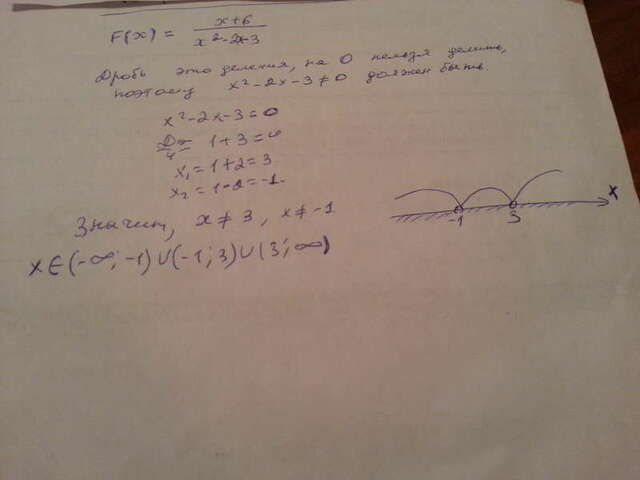 F(x) = x+6 / x²-2x-3
Дробь это деления, на 0 нельзя делить,
поэтому x²-2x-3≠0 должен быть
x²-2x-3=0
D/4 = 1+3=4
x₁=1+2=3
x₂=1-2=-1.
Значит, x≠3, x≠-1
x∈(-∞;-1)∪(-1;3)∪(3;∞)
-1 3 x